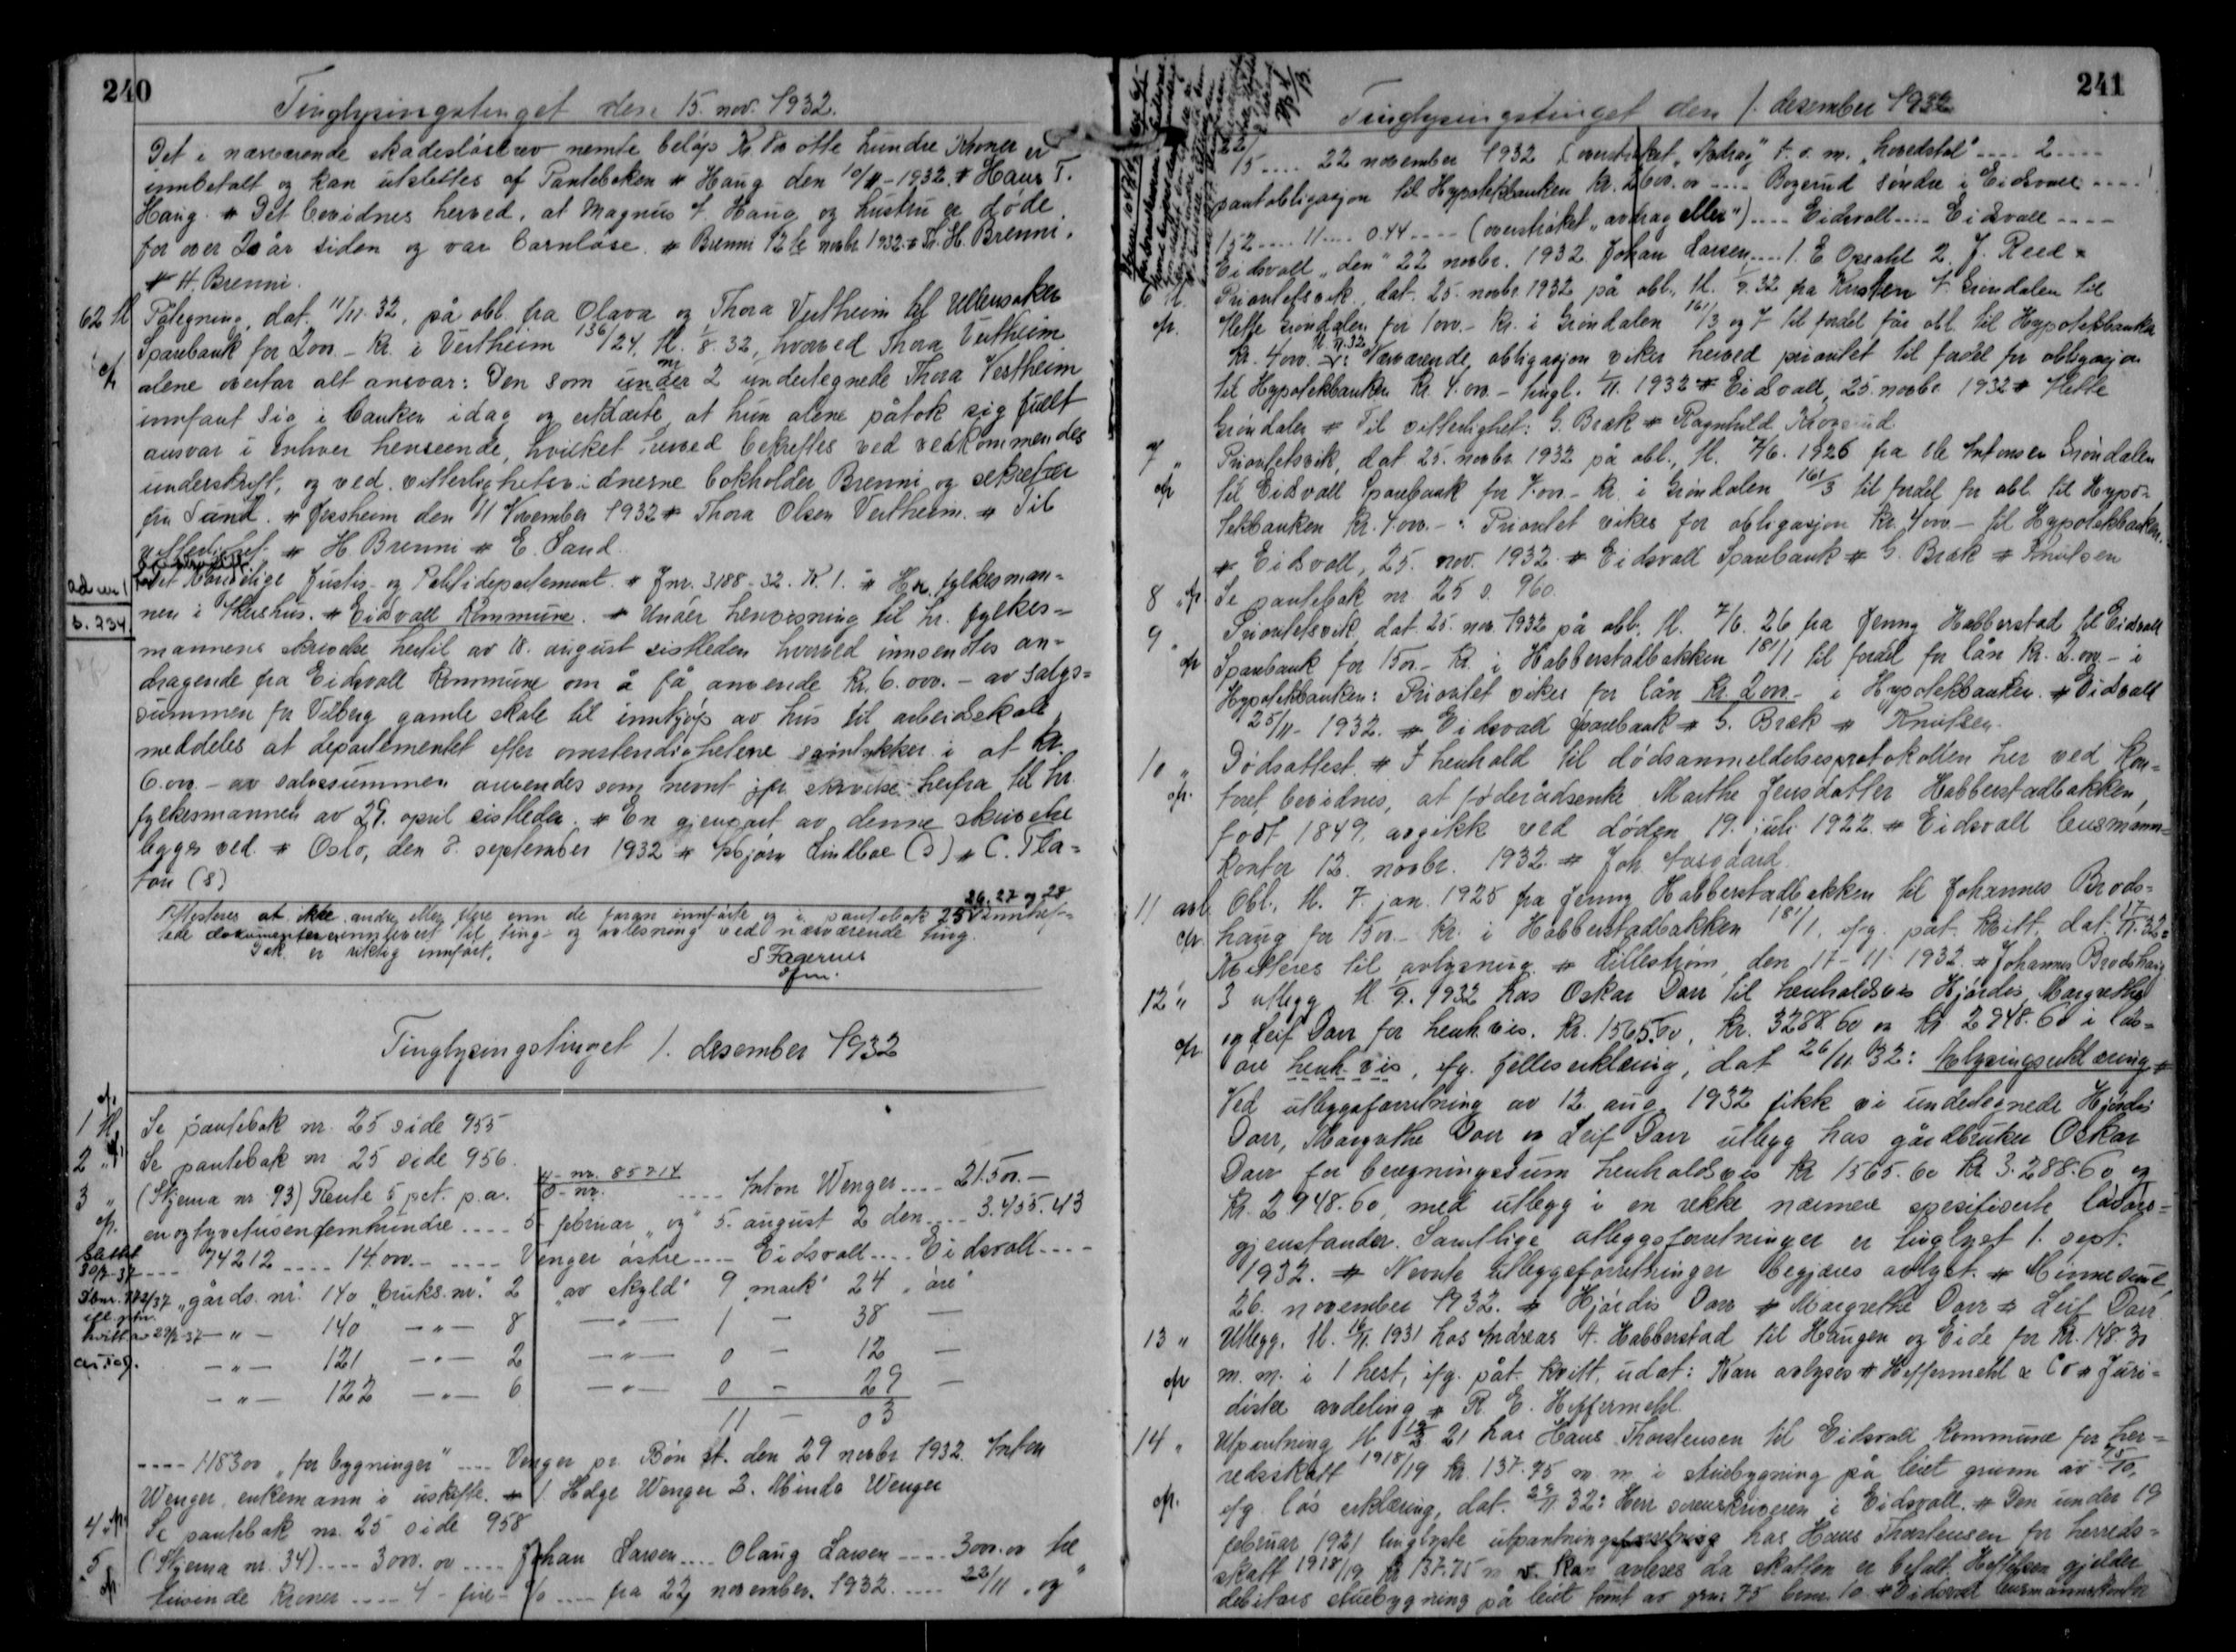 240
Tinglysingstinget den 15. nov. 1932.
Det i nærværende skadesløsbrev nemte beløp Kr. 800 otte hundre Kroner er
innbetalt og kan utslettes af Panteboken # Haug den 10/11-1932. # Hans T.
Haug. # Det bevidnes herved, at Magnus T. Haug og hustru er døde
for over 20 år siden og var barnløse. # Brenni 12te novbr 1932. # Fr. H. Brenni.
# H. Brenni.
62 tl Påtegning, dat. 11/11.32, på obl. fra Olava og Thora Vestheim til Ullensaker
Sparebank for 2000.- Kr. i Vestheim 136/24, tl. 1/8.32, hvorved Thora Vestheim
alene overtar alt ansvar: Den som under nr 2 undertegnede Thora Vestheim
innfant sig i banken idag og erklærte at hun alene påtok sig fullt
ansvar i enhver henseende, hvilket herved bekreftes ved vedkommendes
underskrift, og ved vitterlighetsvidnerne bokholder Brenni og sekretær
frk Sand. # Jessheim den 11 November 1932 # Thora Olsen Vestheim. # Til
vitterlighet # H. Brenni # E. Sand.
ad nr 1 s. 234
Det Kongelige Justis- og Politidepartement. # Jnr. 3188-32. K. 1. # Hr. fylkesman=
nen i Akershus. # Eidsvoll Kommune. # Under henvisning til hr. fylkes=
mannens skrivelse hertil av 18. august sistleden hvorved innsendtes an=
dragende fra Eidsvoll Kommune om å få anvende kr. 6.000.- av salgs=
summen for Vilberg gamle skole til innkjøp av hus til arbeidskole
meddeles at departementet efter omstendighetene samtykker i at kr.
6.000.- av salgssummen anvendes som nevnt jfr. skrivelse herfra til hr.
fylkesmannen av 29. april sistleden. # En gjenpart av denne skrivelse
legges ved. # Oslo, den 8. september 1932 # Asbjørn Lindboe (s) # C. Pla=
tou (s)
Attesteres at ikke andre eller flere enn de foran innførte og i pantebok 25, 26, 27 og 28 innhef=
tede dokumenter er innlevert til ting- og avlesning ved nærværende ting.
Dok. er riktig innført.
S Fagernes
ofm.
Tinglysingstinget 1. desember 1932
1 tl. Se pantebok nr. 25 side 955
2 " Se pantebok nr 25 side 956.
3 " (Skjema nr. 93) Rente 5 pct. p.a. u- nr. 85714 / o- nr. .... Anton Wenger .... 21.500.-
en og tyvetusenfemhundre .... 5. februar „og" 5. august 2 den .... 3.455.43
.... 74212 .... 14.000.- .... Venger østre .... Eidsvoll .... Eidsvoll ....
„gårds. nr." 140 „bruks. nr." 2 „av skyld" 9 „mark" 24 „øre"
-"- 140 -"- 8 -"- 1 - 38 -
-"- 121 -"- 2 -"- 0 - 12 -
-"- 122 -"- 6 -"- 0 - 29 -
11 - 03
---- 118300 „for bygninger" .... Venger pr. Bøn st. den 29 novbr 1932. Anton
Wenger, enkemann i uskifte. # 1 Helge Wenger 2. Minda Wenger
4 " Se pantebok nr. 25 side 958
5 " (Skjema nr. 34) .... 3000.00 .... Johan Larsen .... Olaug Larsen .... 3000.00 tre
tusinde kroner .... 4 - fire - % .... fra 22 november 1932 .... 22/11 „og"
241
Tinglysingstinget den 1. desember 1932
22/5 .... 22 november 1932 (overstrøket „Avdrag" t. o. m. „hovedstol" .... 2 ....
pantobligasjon til Hypotekbanken Kr. 2600.00 .... Bøgerud søndre i Eidsvoll ....
152 .... 11 .... 0.44 .... (overstrøket „avdrag eller") .... Eidsvoll .... Eidsvoll ....
Eidsvoll „den" 22 novbr. 1932 Johan Larsen .... 1. E Opsahl 2. J. Reed #
6 tl. Prioritetsvik., dat. 25. novbr. 1932 på obl., tl. 1/9.32 fra Kristen A Grøndalen til
Mette Grøndalen for 1000.- kr. i Grøndalen 161/3 og 7 til fordel for obl. til Hypotekbanken
kr. 4000.-: Nærværende obligasjon viker herved prioritet til fordel for obligasjon
til Hypotekbanken kr. 4.000.- tingl. 1/11. 1932 # Eidsvoll, 25. novbr. 1932 # Mette
Grøndalen # Til vitterlighet: G. Bræk # Ragnhild Krogsrud
7 " Prioritetsvik, dat. 25. novbr. 1932 på obl., tl. 7/6. 1926 fra Ole Antonsen Grøndalen
til Eidsvoll Sparebank for 7.000.- kr. i Grøndalen 161/3 til fordel for obl. til Hypo=
tekbanken kr. 4.000.-: Prioritet vikes for obligasjon kr. 4000.- til Hypotekbanken.
# Eidsvoll, 25. nov. 1932 # Eidsvoll Sparebank # G. Bræk # Knutsen
8 " Se pantebok nr. 25 s. 960.
9 " Prioritetsvik, dat. 25. nov. 1932 på obl. tl. 7/6. 26 fra Jenny Habberstad til Eidsvoll
Sparebank for 1500.- kr. i Habberstadbakken 181/1 til fordel for lån kr. 2.000.- i
Hypotekbanken: Prioritet vikes for lån kr. 2000.- i Hypotekbanken. # Eidsvoll
25/11- 1932. # Eidsvoll sparebank # G. Bræk # Knutsen.
10 " Dødsattest. # I henhold til dødsanmeldelsesprotokollen her ved kon=
toret bevidnes, at føderådsenke Marthe Jensdatter Habberstadbakken,
født 1849, avgikk ved døden 19. juli 1922. # Eidsvoll lensmann=
kontor 12. novbr. 1932. # Joh.
11 avl. Obl., tl. 7. jan. 1925 fra Jenny Habberstadbakken til Johannes Brods=
haug for 1500.- kr. i Habberstadbakken 181/1, efg. påt. kvitt. dat. 17/11.32:
Kvitteres til avlysning # Lillestrøm, den 17-11-1932. # Johannes Brodshaug
12 " 3 utlegg, tl. 1/9. 1932 hos Oskar Dorr til henholdsvis Hjørdis, Margrethe
og Leif Dorr for henh.vis. kr. 1565.60, kr. 3288.60 og kr 2948.60 i løs=
øre henh.vis, efg. felleserklæring, dat 26/11 32: Avlysningserklæring #
Ved utleggsforretning av 12 aug. 1932 fikk vi undertegnede Hjørdis
Dorr, Margrethe Dorr og Leif Dorr utlegg hos gårdbruker Oskar
Dorr for beregningssum henholdsvis kr 1565.60 kr 3.288.60 og
kr. 2948.60, med utlegg i en rekke nærmere spesifiserte løsøre=
gjenstander. Samtlige utleggsforretninger er tinglyst 1. sept.
1932. # Nevnte utleggsforretninger begjæres avlyst. # Minnesund,
26. november 1932. # Hjørdis Dorr # Margrethe Dorr # Leif Dorr
13 " Utlegg. tl. 16/11. 1931 hos Andreas A. Habberstad til Haugen og Eide for kr. 148.30
m. m. i 1 hest, ifg. påt. kvitt. udat: Kan avlyses # Heffermehl & Co # Juri=
diske avdeling # R. E. Heffermehl.
14 " Utpantning tl 19/2 21 hos Hans Thorstensen til Eidsvoll Kommune for her=
redsskatt 1918/19 kr. 137.75 m. m. i stuebygning på leiet grunn av 75/10,
efg. løs erklæring, dat. 29/11. 32: Herr sorenskriveren i Eidsvoll. # Den under 19
februar 1921 tinglyste utpantningsforretning hos Hans Thorstensen for herreds=
skatt 1918/19 kr 137.75 m v. kan avleses da skatten er betalt. Heftelsen gjelder
debitors stuebygning på leiet tomt av gnr. 75 bnr. 10. # Eidsvoll lensmannskontor